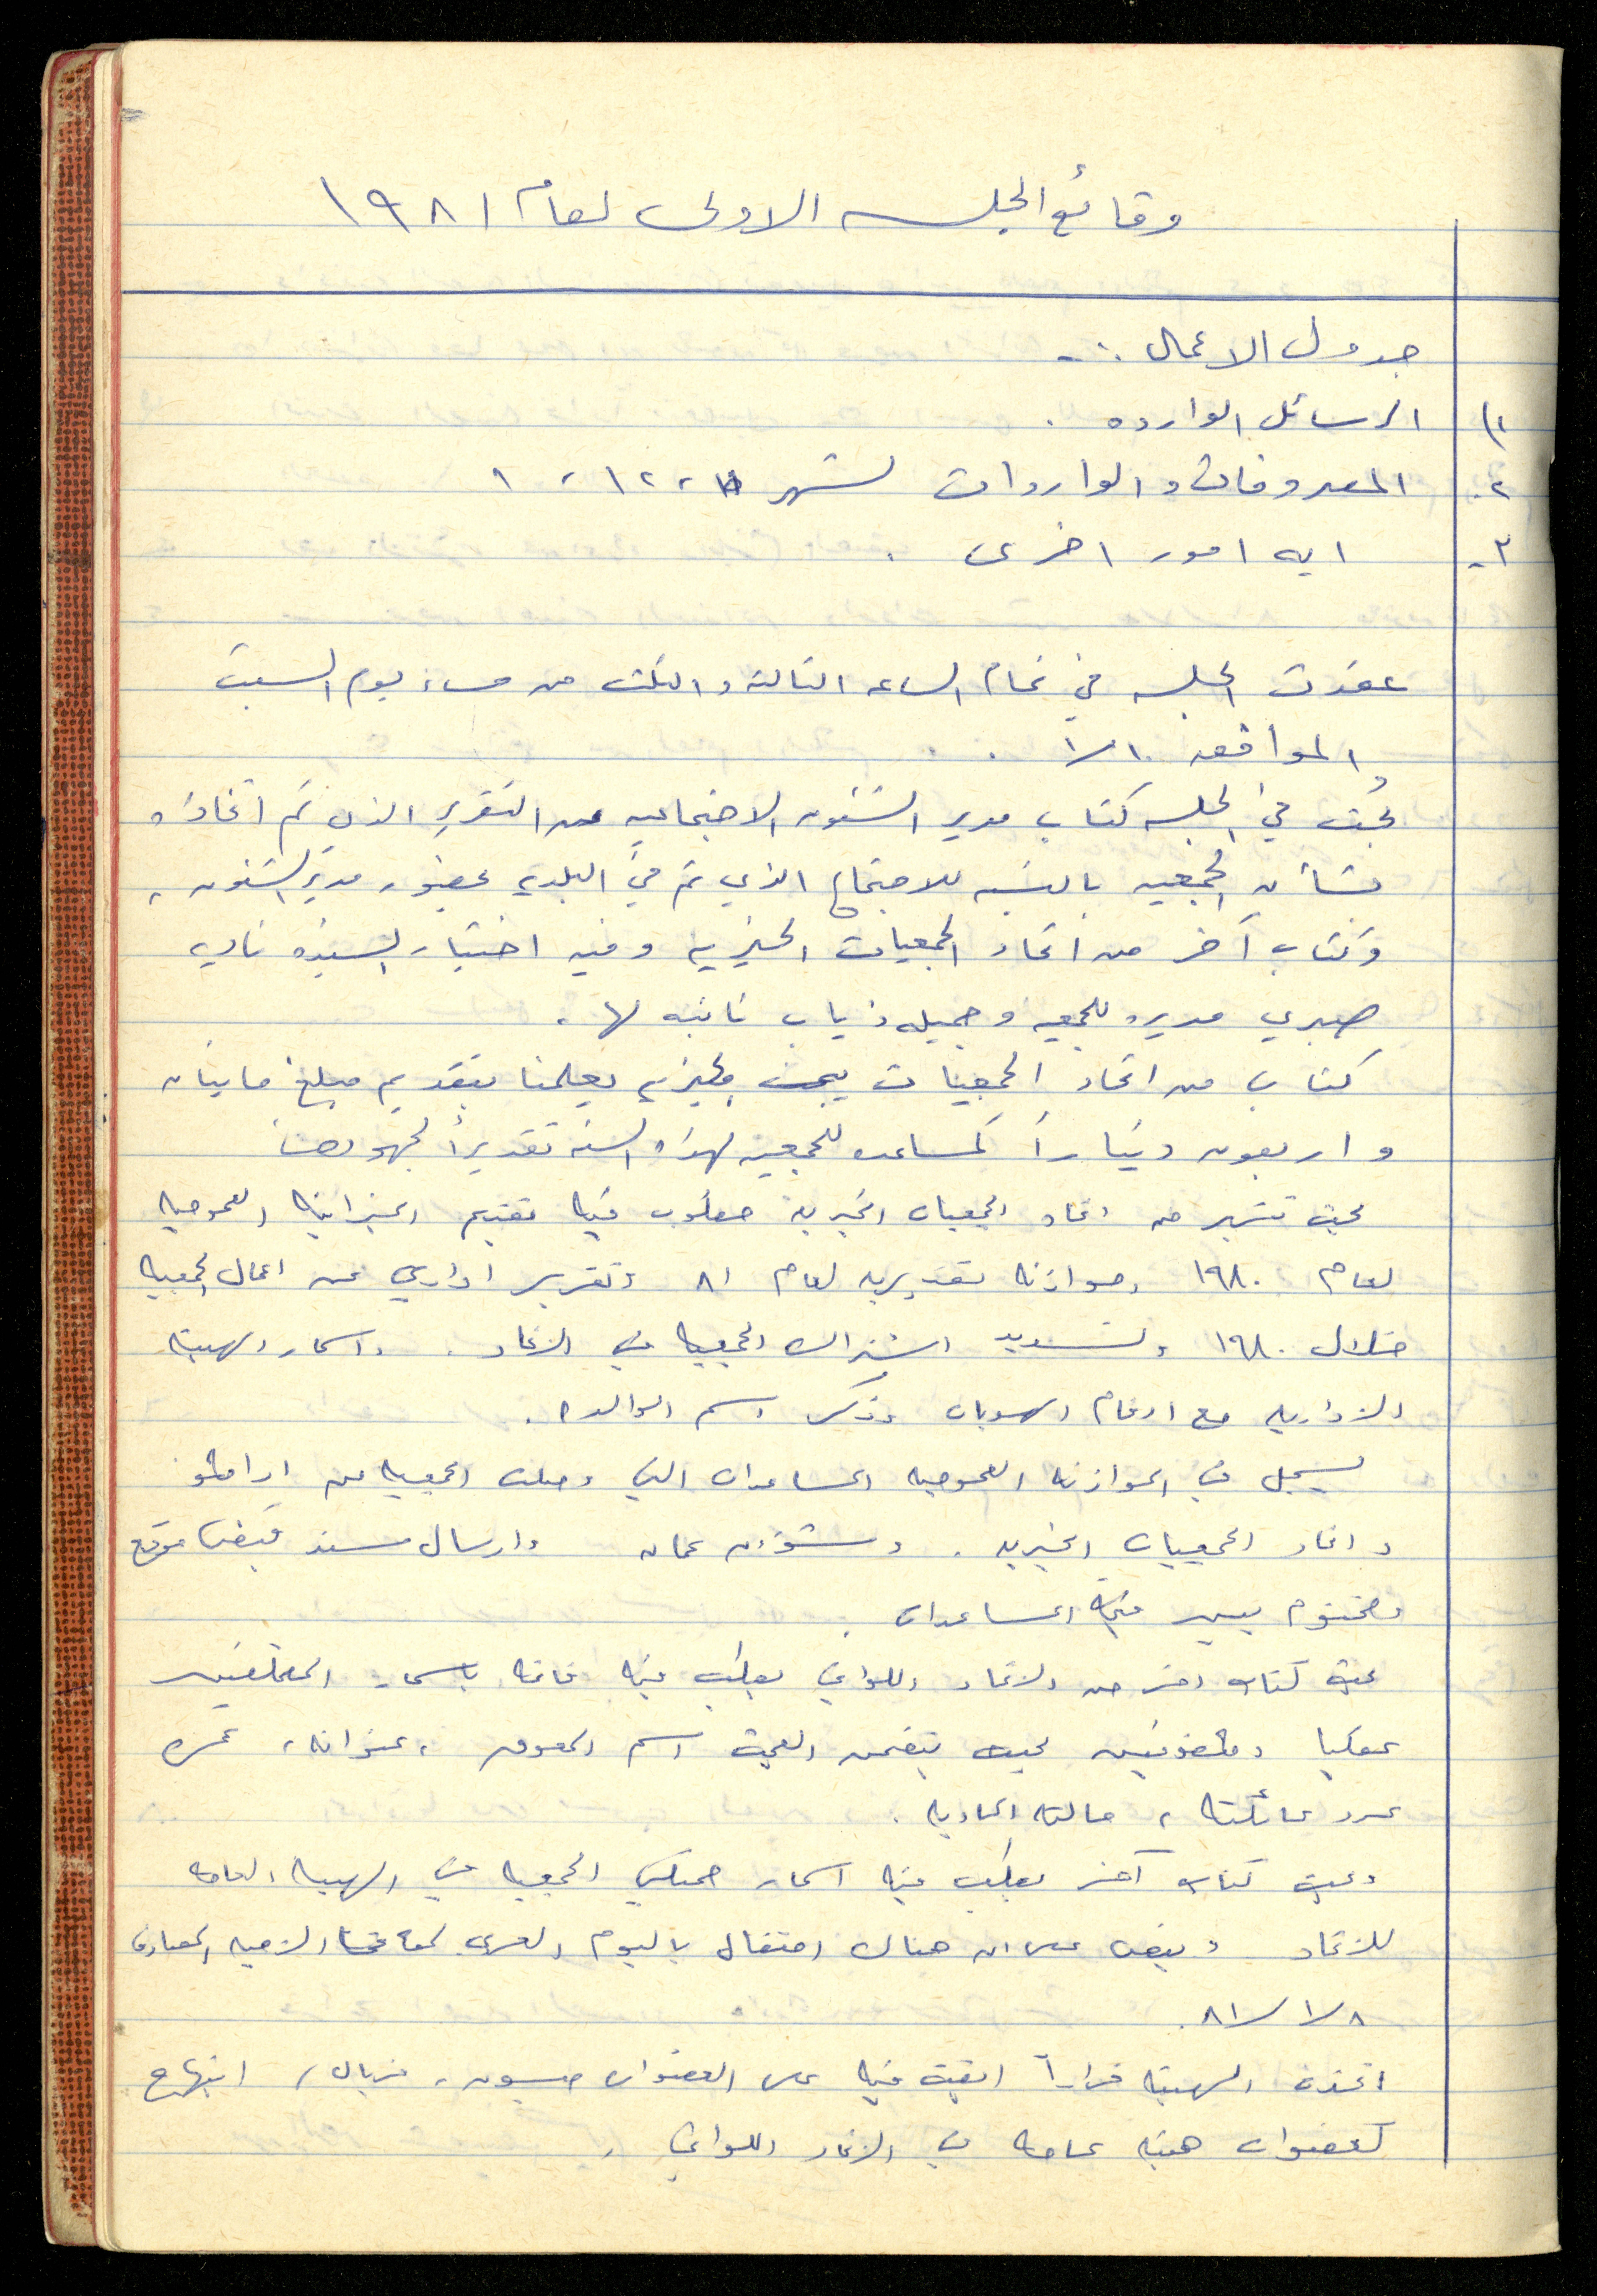 وقائع الجلسه الاولى لعام ١٩٨١
جدول الاعمال :-
١) الرسائل الوارده .
٢. المصروفات والواردات لشهر ١١ ، ١٢ ، ١
٣- ايه امور اخرى .
عقدت الجلسه في تمام الساعه الثالثه والثلث من مساء يوم السبت
الموافق ١/١٠ .
بحث في الجلسه كتاب مدير الشئون الاجتماعيه عن التقرير الذي تم اتخاذه
بشأن الجمعيه بالنسبه للاجتماع الذي تم في البلديه بحضور مدير الشئون ،
وكتاب آخر من اتحاد الجمعيات الخيريه وفيه اختيار السيده ناديه
صبري مديره للجمعيه وجميله ذياب نائبه لها .
كتاب من اتحاد الجمعيات يبحث الخيريه يعلمنا بتقديم مبلغ مايتان
واربعون ديناراً كمساعده للجمعيه لهذه السنه تقديراً لجهودها
بحث من اتحاد الجمعيات الخيريه مطلوب فيه تقديم الميزانيه العموميه
لعام ١٩٨٠ وموازنه تقديريه لعام ٨١ وتقرير اداري عن اعمال الجمعيه
خلال ١٩٨٠ وتسديد اشتراك الجمعيه في الاتحاد . واسماء الهيئه
الاداريه مع ارقام الهويات وذكر اسم الوالد .
يسجل في الموازنه العموميه المساعدات التي وصلت الجمعيه من
واتحاد الجمعيات الخيريه . وشؤون عمان وارسال سند قبض موقع
ومختوم يبين فيه المساعدات .
بحث كتاب اخر من الاتحاد اللوائي يطلب فيه قائمه باسماء المتخلفين
عقليا بحيث يتضمن البحث اسم المعوق ، عنوانه ، عمره
عدد عائلته ، حالته الماديه .
وبحث كتاب آخر يطلب فيه اسماء ممثلي الجمعيه في الهيئه العامه
للاتحاد وينص على ان هناك احتفال باليوم العربي لمكافحة الاميه المصادف
٨/١/٨١.
اتخذت الهيئه قراراً ابقيت فيه على العضوات ميسون ، فريال ، ابتهاج
كعضوات هيئه عامه في الاتحاد اللوائي .